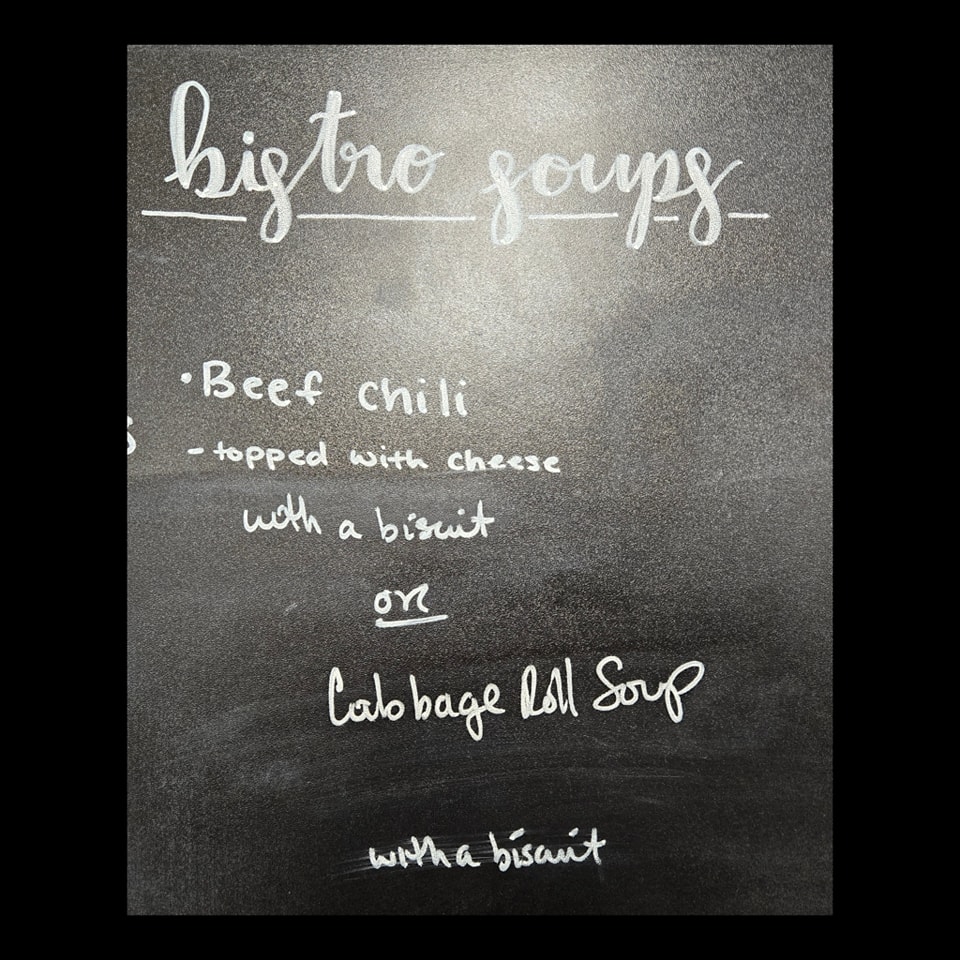 bistro soups
• Beef chili
- topped with cheese
with a biscuit
or
Cabbage Roll Soup
with a biscuit